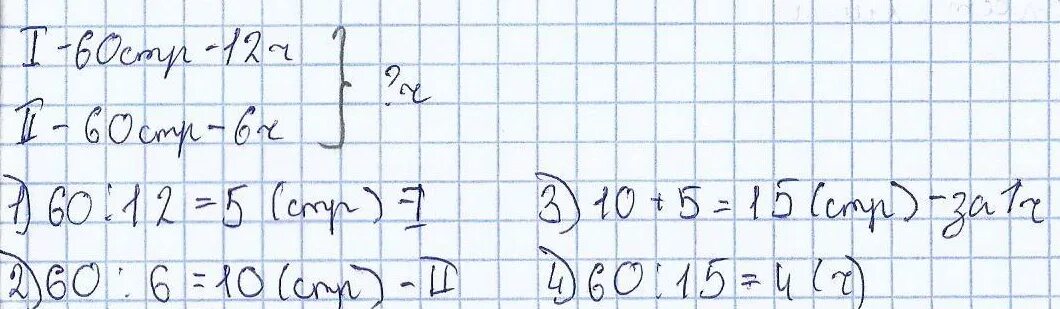 I - 60 стр - 12 ч
II - 60 стр - 6 ч
? ч
1) 60 : 12 = 5 (стр) - I
2) 60 : 6 = 10 (стр) - II
3) 10 + 5 = 15 (стр) - за 1 ч
4) 60 : 15 = 4 (ч)